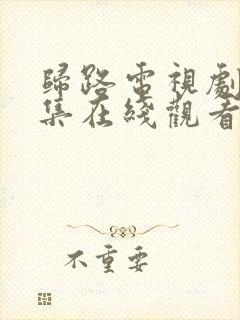 歸路電視劇
集在綫觀看
不重要